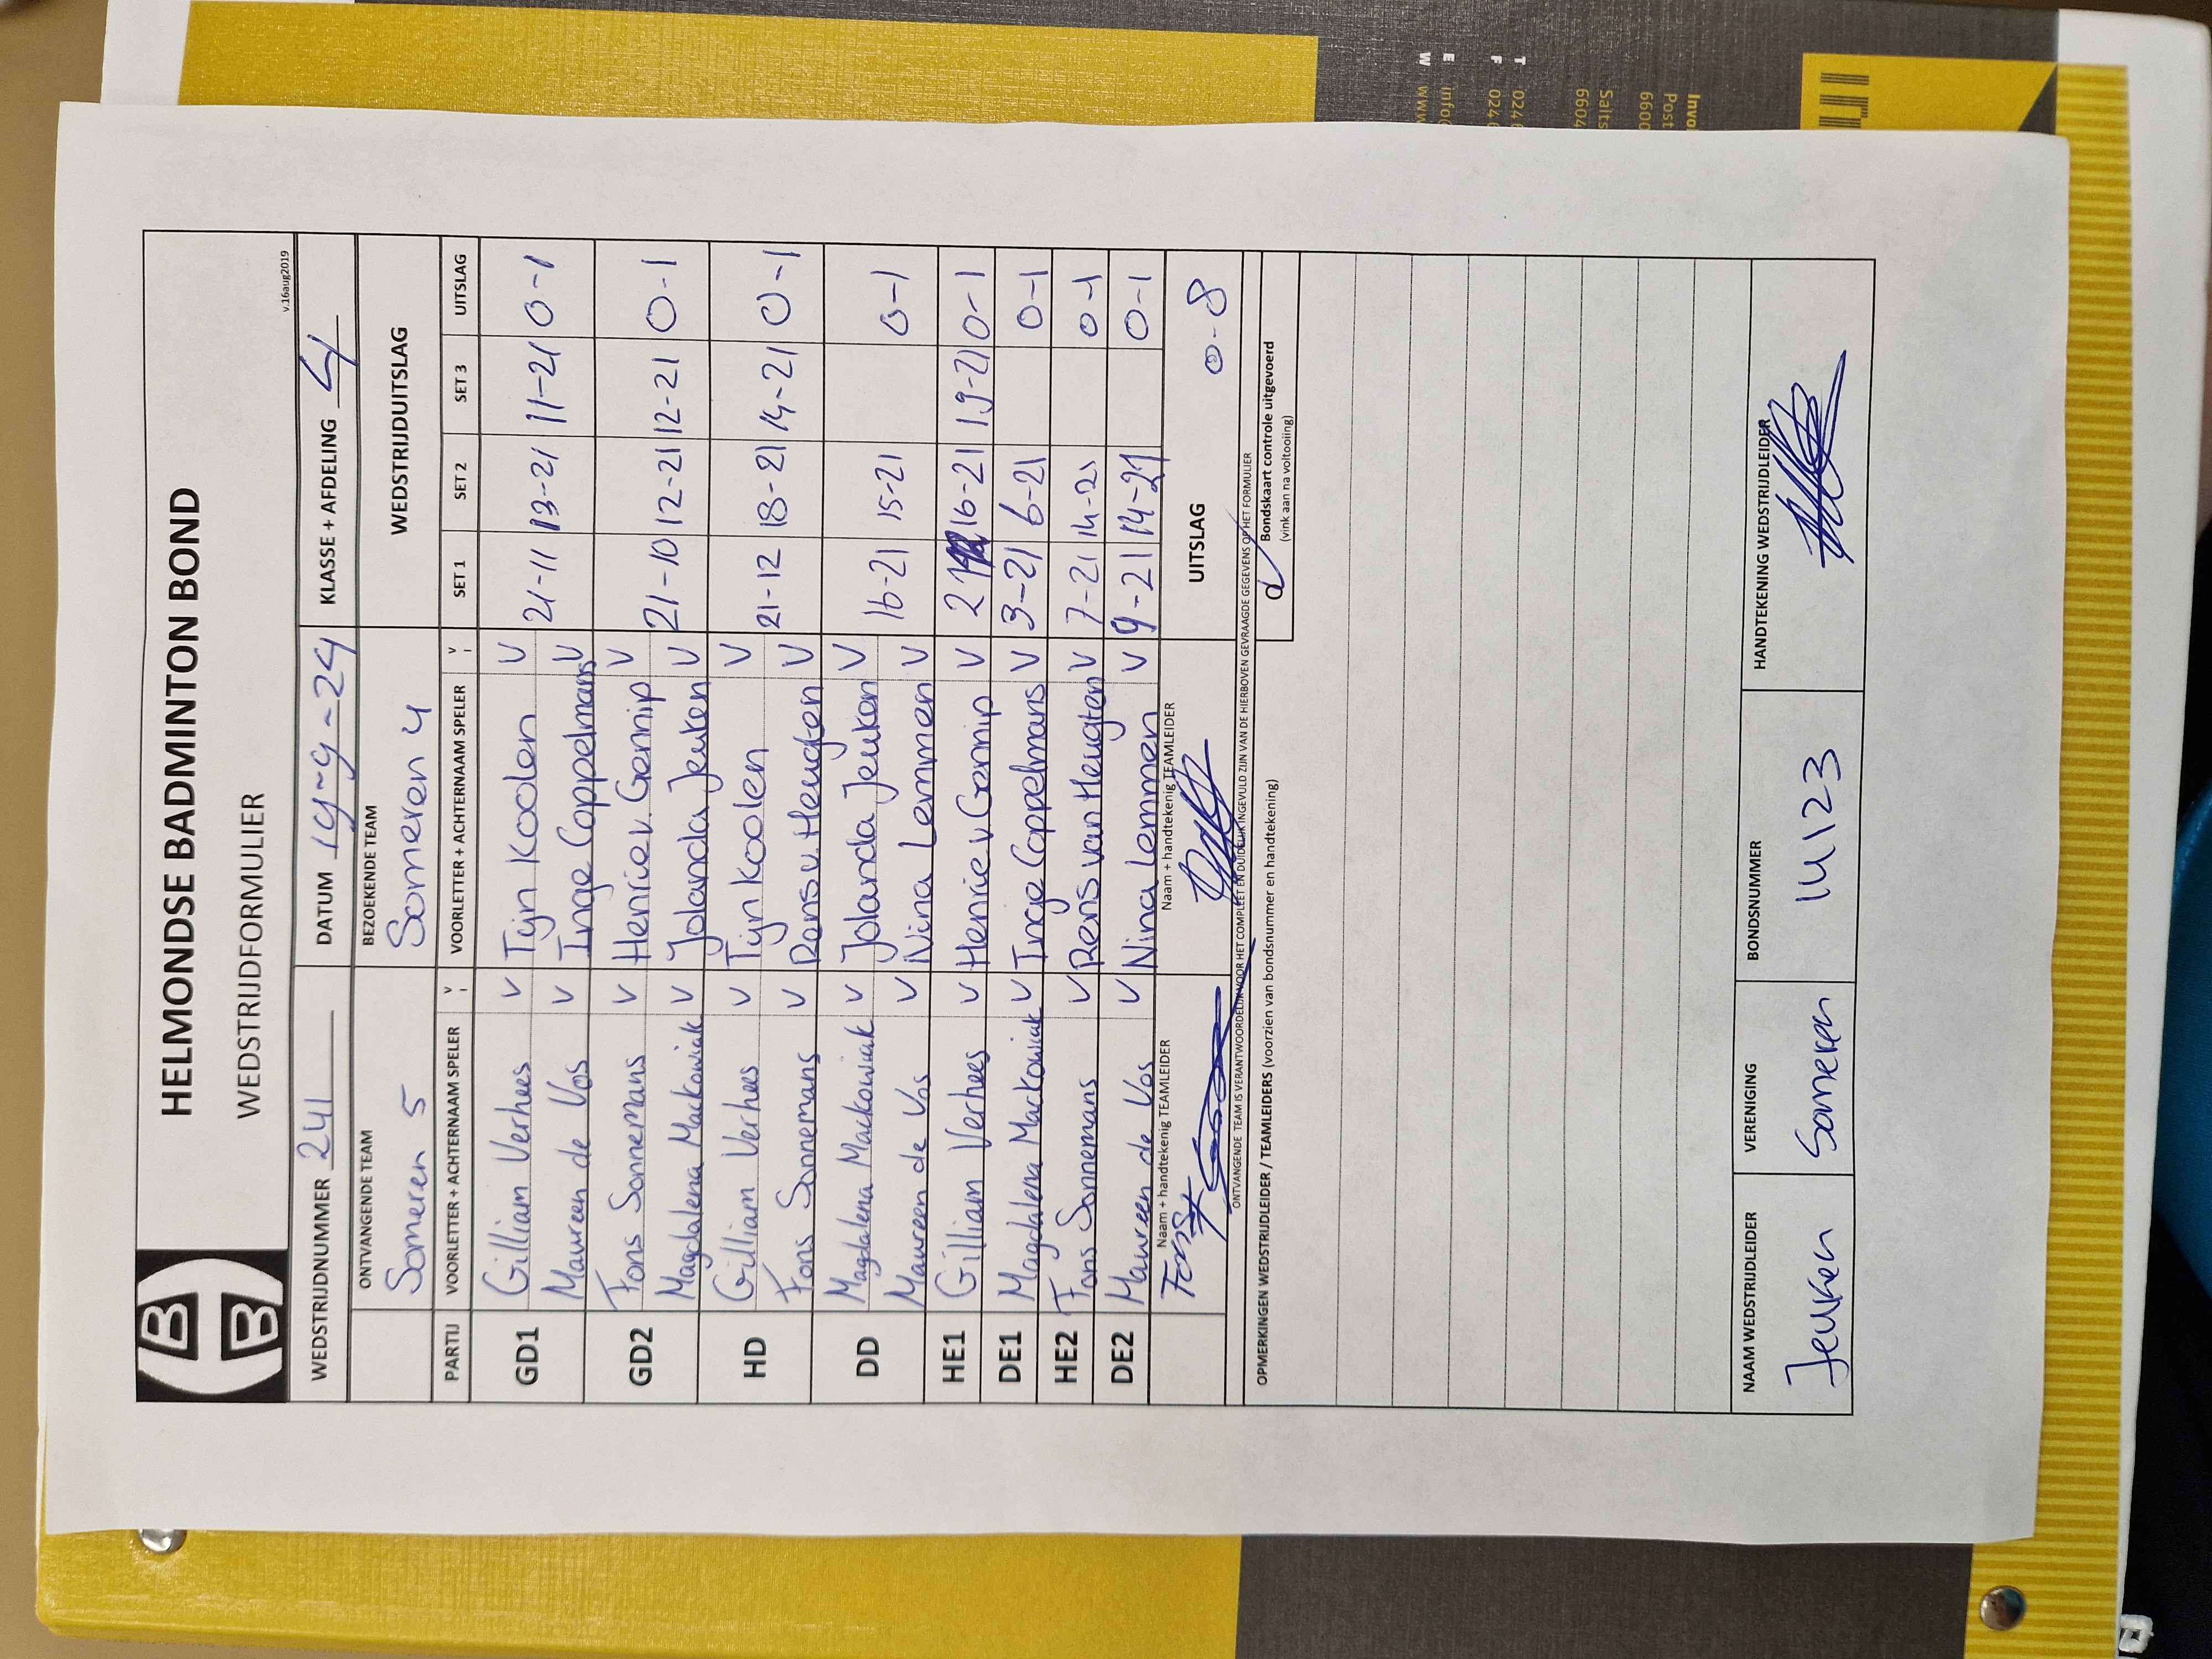 HELMONDSE BADMINTON BOND
WEDSTRIJDFORMULIER
v.16aug2019
WEDSTRIJDNUMMER 241 DATUM 19-9-24 KLASSE + AFDELING 4
ONTVANGENDE TEAM BEZOEKENDE TEAM WEDSTRIJDUITSLAG
Someren 5 Someren 4
PARTIJ VOORLETTER + ACHTERNAAM SPELER V VOORLETTER + ACHTERNAAM SPELER V SET 1 SET 2 SET 3 UITSLAG
GD1 Gilliam Verhees V Tijn Koolen V 21-11 13-21 11-21 0-1
Maureen de Vos V Inge Coppelmans V
GD2 Fons Sonnemans V Henrie v. Gennip V 21-10 12-21 12-21 0-1
Magdalena Mackowiak V Jolanda Jeuken V
HD Gilliam Verhees V Tijn Koolen V 21-12 18-21 14-21 0-1
Fons Sonnemans V Rens v. Heugten V
DD Magdalena Mackowiak V Jolanda Jeuken V 16-21 15-21 0-1
Maureen de Vos V Nina Lemmen V
HE1 Gilliam Verhees V Henrie v Gennip V 16-21 19-21 0-1
DE1 Magdalena Mackowiak V Inge Coppelmans V 3-21 6-21 0-1
HE2 Fons Sonnemans V Rens van Heugten V 7-21 14-21 0-1
DE2 Maureen de Vos V Nina Lemmen V 9-21 14-21 0-1
Naam + handtekenig TEAMLEIDER Naam + handtekenig TEAMLEIDER UITSLAG 0-8
ONTVANGENDE TEAM IS VERANTWOORDELIJK VOOR HET COMPLEET EN DUIDELIJK INGEVULD ZIJN VAN DE HIERBOVEN GEVRAAGDE GEGEVENS OP HET FORMULIER
OPMERKINGEN WEDSTRIJDLEIDER / TEAMLEIDERS (voorzien van bondsnummer en handtekening)
Bondskaart controle uitgevoerd
(vink aan na voltooiing)
NAAM WEDSTRIJDLEIDER VERENIGING BONDSNUMMER HANDTEKENING WEDSTRIJDLEIDER
Jeuken Someren 14123
T 024
F 024
E info
W www